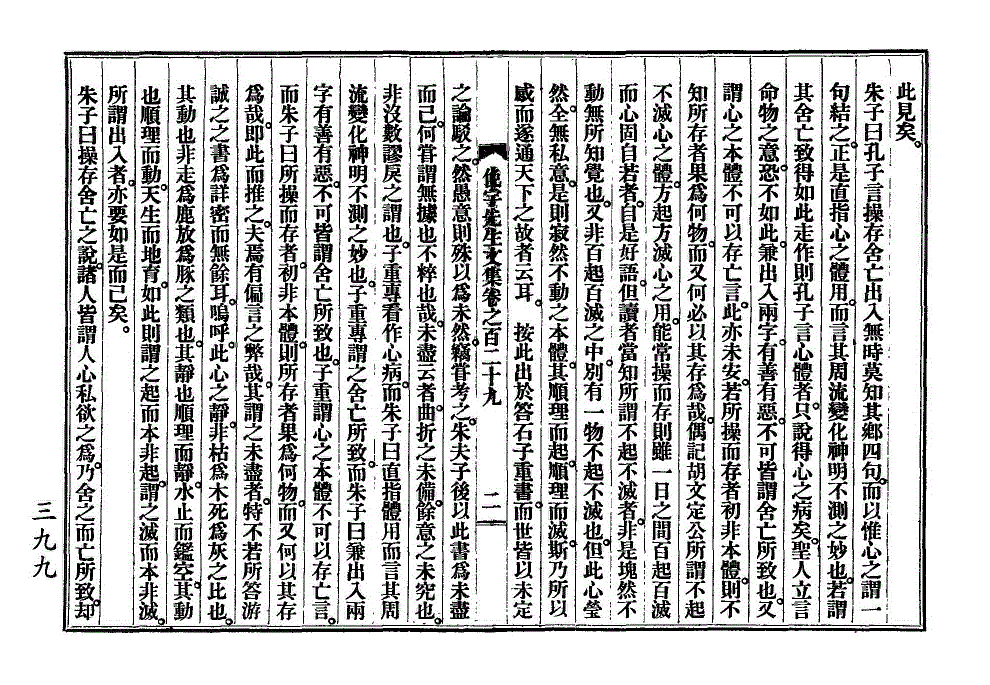 此見矣。
朱子曰孔子言操存舍亡出入無時莫知其鄉四句。而以惟心之謂一
句結之。正是直指心之體用。而言其周流變化神明不測之妙也。若謂
其舍亡致得如此走作。則孔子言心體者。只說得心之病矣。聖人立言
命物之意。恐不如此。兼出入兩字。有善有惡。不可皆謂舍亡所致也。又
謂心之本體不可以存亡言。此亦未安。若所操而存者初非本體。則不
知所存者果爲何物。而又何必以其存爲哉。偶記胡文定公所謂不起
不滅心之體。方起方滅心之用。能常操而存。則雖一日之間百起百滅
而心固自若者。自是好語。但讀者當知所謂不起不滅者。非是塊然不
動無所知覺也。又非百起百滅之中。別有一物不起不滅也。但此心瑩
然。全無私意。是則寂然不動之本體。其順理而起。順理而滅。斯乃所以
感而遂通天下之故者云耳。　按此出於答石子重書。而世皆以未定
儷宇先生文集卷之百二十九　二
之論駁之。然愚意則殊以爲未然。竊嘗考之。朱夫子後以此書爲未盡
而已。何嘗謂無據也不粹也哉。未盡云者。曲折之未備。餘意之未究也。
非沒數謬戾之謂也。子重專看作心病。而朱子曰直指體用而言其周
流變化神明不測之妙也。子重專謂之舍亡所致。而朱子曰兼出入兩
字有善有惡。不可皆謂舍亡所致也。子重謂心之本體不可以存亡言。
而朱子曰所操而存者。初非本體。則所存者果爲何物。而又何以其存
爲哉。即此而推之。夫焉有偏言之弊哉。其謂之未盡者。特不若所答游
誠之之書爲詳密而無餘耳。嗚呼。此心之靜。非枯爲木死爲灰之比也。
其動也非走爲鹿放爲豚之類也。其靜也順理而靜。水止而鑑空。其動
也順理而動。天生而地育。如此則謂之起而本非起。謂之滅而本非滅。
所謂出入者。亦要如是而已矣。
朱子曰操存舍亡之說。諸人皆謂人心私欲之爲。乃舍之而亡所致。却
三九九